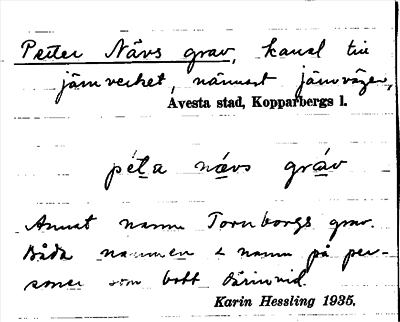 Petter Nävs grav, kanal till
järnverket, närmast järnvägen,
Avesta stad, Kopparbergs l.
péta nævs gráv
Annat namn Tornborgs grav.
Båda namnen & namn på per-
soner som bott därinvid.
Karin Hessling 1935.